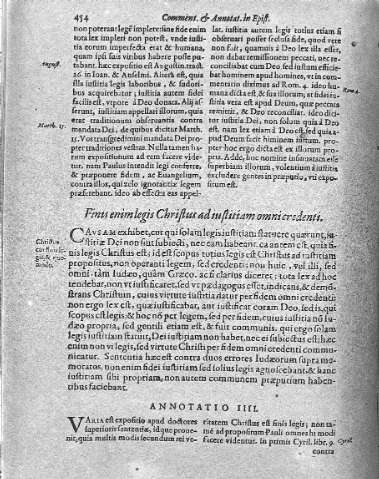 454 Comment. & Annotat. In Epist.
non poterant legē implere sine fide enim
tota lex impleri non potest, vnde iusti-
tia eorum imperfecta erat & humana,
quam ipsi suis viribus habere posse pu-
tabant. hæc expositio est Augustin. tract.
26 in Ioan. & Anselmi. Alij est, quia
illa iustitia legis laboribus, & sudori-
bus acquireretur, iustitia autem fidei
facilis est, vtpote à Deo donata. Alij as-
serunt, iustitiam appellari illorum, quia
erat traditionum obseruantis contra
mandata Dei, de quibus dicitur Matth.
15. Vos transgredimini mandata Dei pro-
pter traditiones vestras. Nulla tamen ha-
rum expositionum ad rem facere vide-
tur. nam Paulus intendit legi conferre,
& præponere fidem, ac Euangelium,
contra illos, qui zelo ignorantiæ legem
præferebant. ideo ab effectu eas appel-
August.
Matth. 15.
lat. iustitia autem legis totius etiam si
obseruari posset seclusa fide, quod vere
non fuit, quamuis à Deo lex illa esset,
non dabat remissionem peccati, nec re-
conciliabat cum Deo, sed iustum efficie-
bat hominem apud homines, vt in com-
mentario diximus ad Rom. 4. ideo hu-
mana dicta est & sua illorum, at fidei iu-
stitia vera est apud Deum, quæ peccata
remittit, & Deo reconciliat. ideo dici-
tur iustitia Dei, non solum quia à Deo
est, nam lex etiam à Deo est, sed quia a-
pud Deum facit hominem iustum. pro-
pter hoc ergo dicta est ex illorum pro-
pria. Adde, hoc nomine insinuatam esse
superbiam illorum, volentium à iustitia
excludere gentes in præputio, vt expo-
situm est.
Rom 4.
Finis enim legis Christus ad iustitiam omni credenti.
Christus
CAVSAM exhibet, cur qui solam legis iustitiam statuere quærunt, iu-
stitiæ Dei non sint subiecti, nec eam habeant. ea autem est, quia fi-
nis legis Christus est; id est scopus totius legis est Christus ad iustitiam
propositus, non operanti legem, sed credenti: non huic, vel illi, sed
omni: tàm Iudæo, quàm Græco. ac si clarius diceret; tota lex ad hoc
tendebat, non vt iustificaret, sed vt pædagogus esset, indicans, & demōn-
strans Christum, cuius virtute iustitia datur per fidem omni credenti
non ergo lex est, quæ iustificabat, aut iustificat coram Deo, sed is, qui
scopus est legis; & hoc nō per legem, sed per fidem, cuius iustitia nō Iu-
dæo propria, sed gentili etiam est, & fuit communis. qui ergo solam
legis iustitiam statuit, Dei iustitiam non habet, nec ei subiectus est. hæc
enim non vi legis, sed virtute Christi per fidem omni credenti commu-
nicatur. Sententia hæc est contra duos errores Iudæorum supra me-
moratos. non enim fidei iustitiam sed solius legis agnoscebant, & hanc
iustitiam sibi propriam, non autem communem præputium haben-
tibus faciebant.
ANNOTATIO IIII.
VARIA est expositio apud doctores
superioris sententiæ, idque prove-
nit, quia multis modis secundum rei ve-
ritatem Christus est finis legis; non ta-
mē ad propositum Pauli omnes hi modi
facere videntur. In primis Cyril. libr. 9.
Cyril.
contra